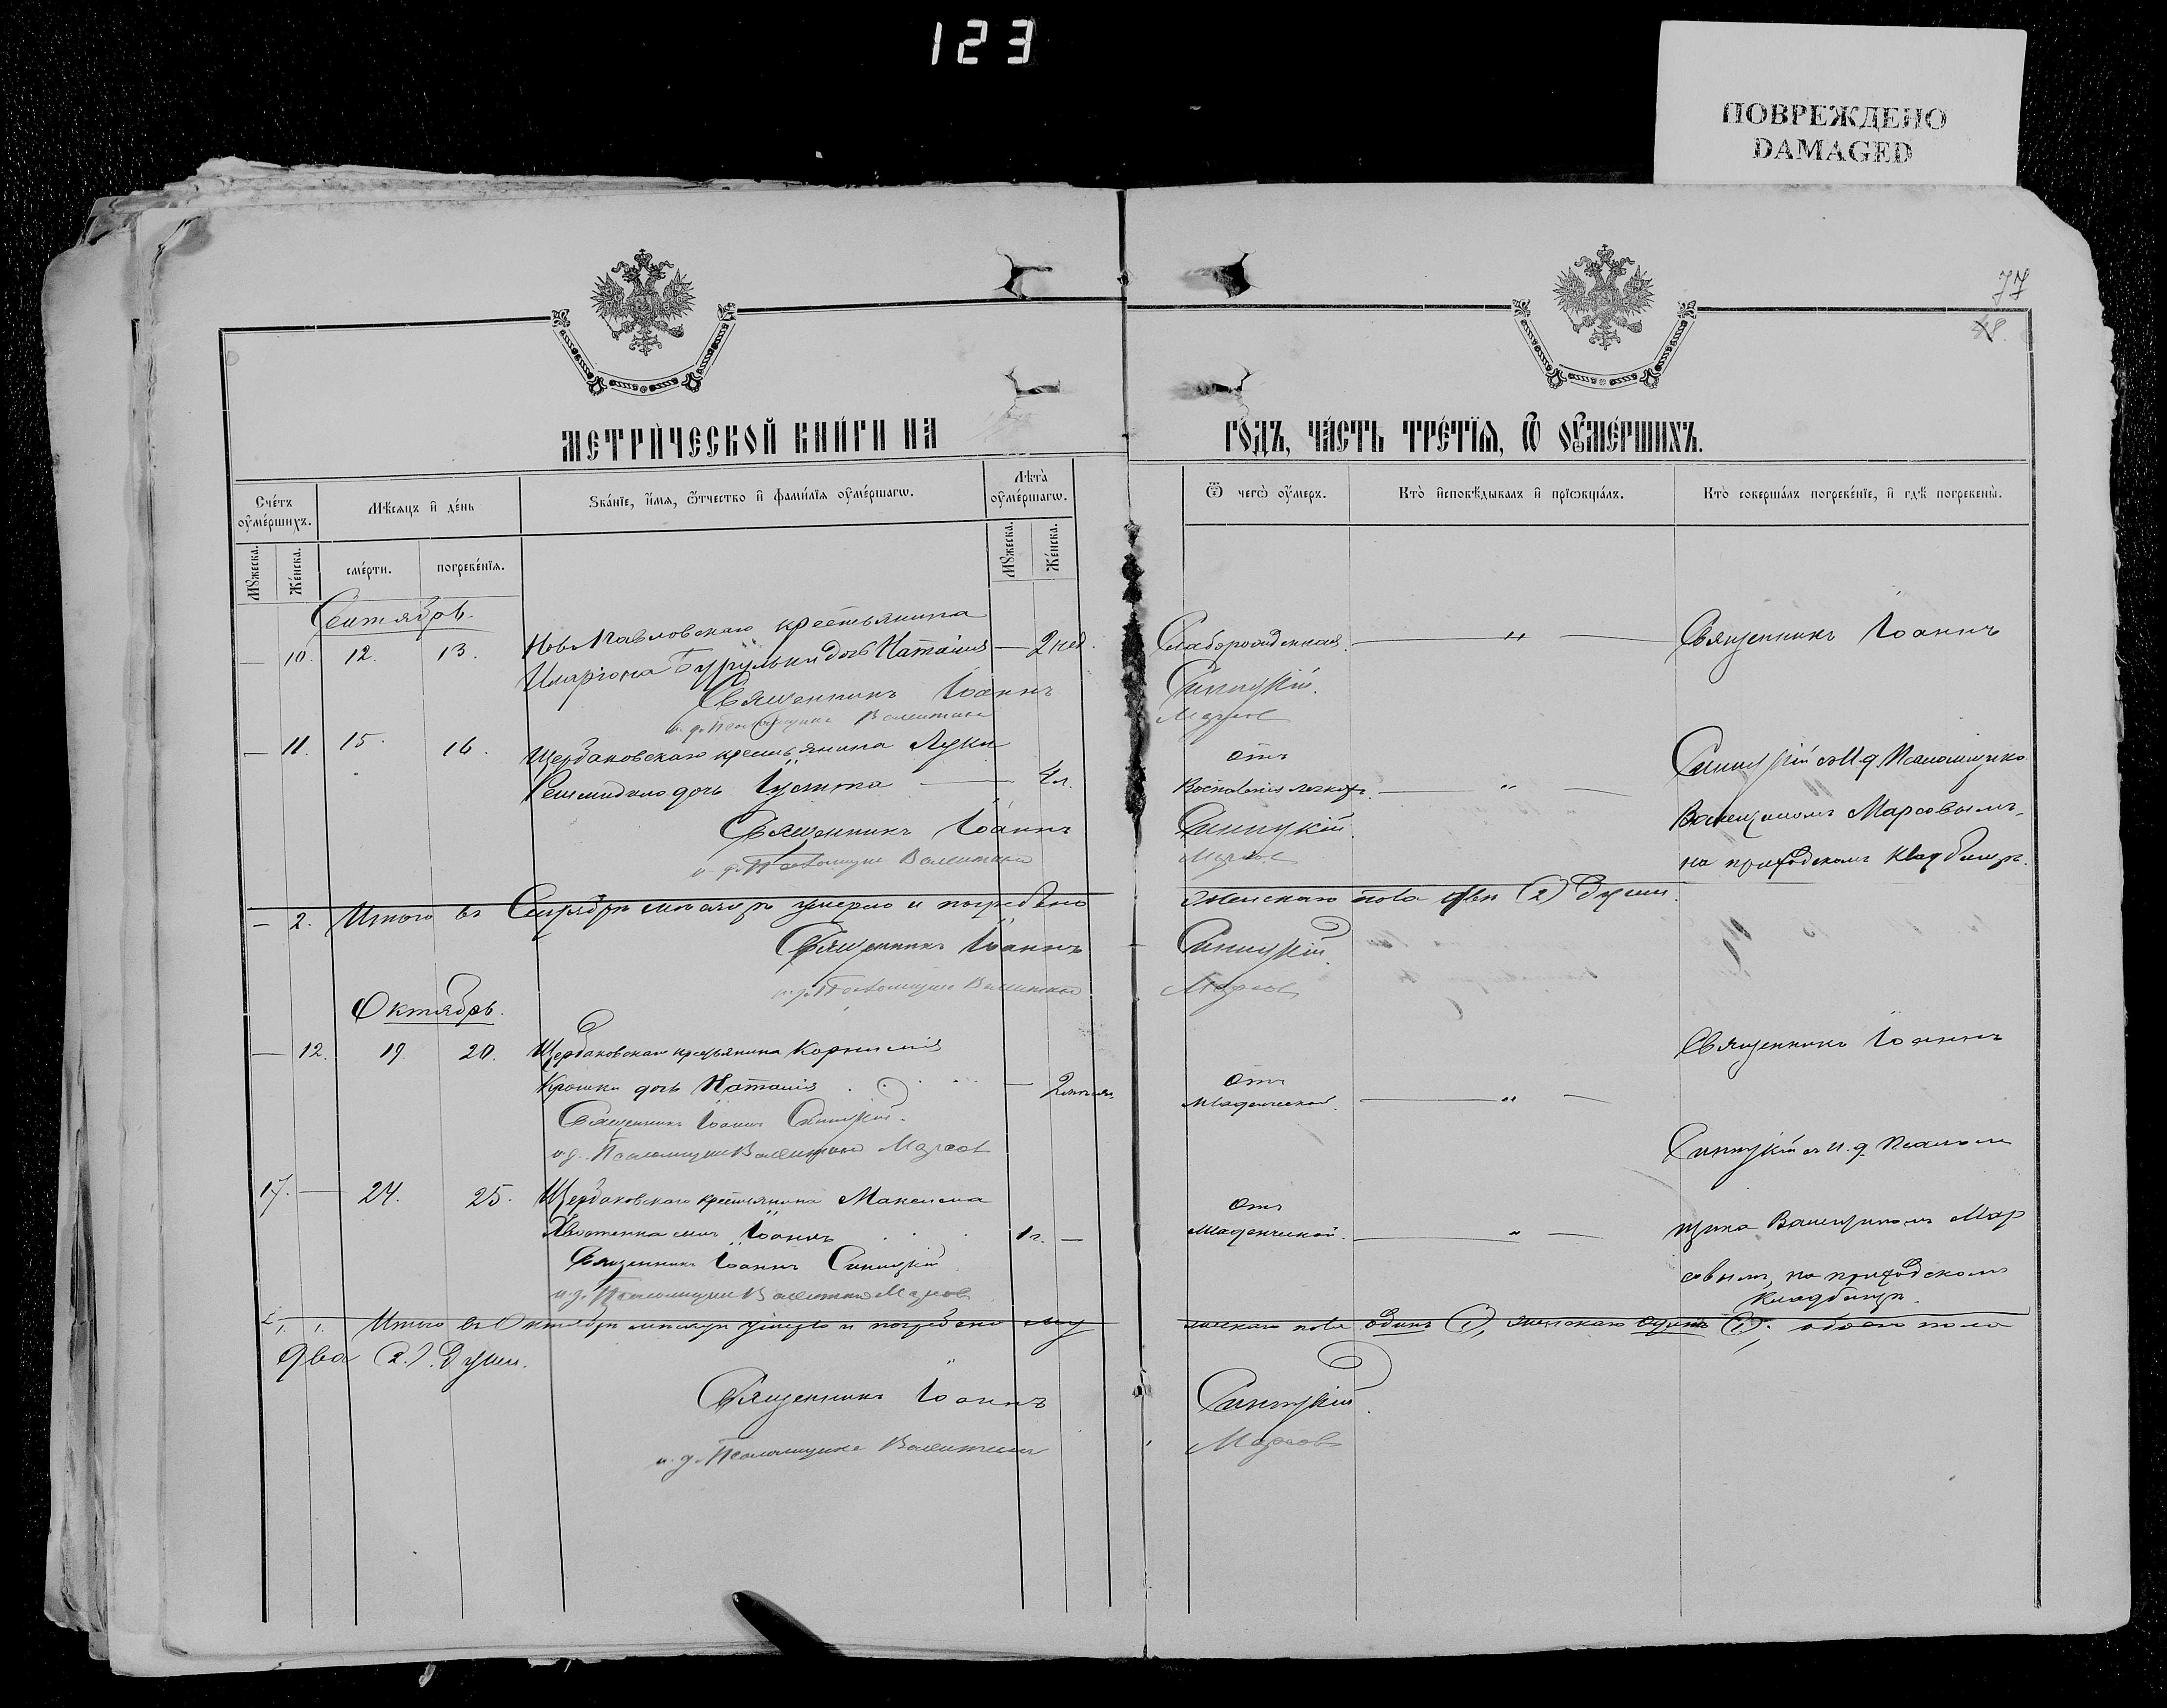 123
ПОВРЕЖДЕНО
DAMAGED
77
МЕТРИЧЕСКОЙ КНИГИ НА ГОДЪ, ЧАСТЬ ТРЕТІЯ, Ѿ ОУМЕРШИХЪ.
Счетъ оумершихъ.
Мѣсяцъ и день
Званіе, имя, ѿчество и фамилія оумершагѡ.
Лѣта оумершагѡ.
Ѿ чегѡ оумеръ.
Кто исповѣдывалъ и пріѡбщалъ.
Кто совершалъ погребеніе, и гдѣ погребены.
Мужеска.
Женска.
смерти.
погребенія.
Мужеска.
Женска.
Сентябрь.
— 10. 12. 13. Ново Павловскаго крестьянина
дочь Наталія — 2 нед. Слаборожденная. — „ — Священникъ Іоаннъ
Священникъ Іоаннъ Синицкій.
и. д. Псаломщика Валентинъ Марсовъ
— 11. 15. 16. Щербаковскаго крестьянина Луки
дочь Іустина — 4 л. отъ Воспаленія легкихъ. — „ — Синицкій съ И. д. Псаломщика
Священникъ Іоаннъ Синицкій. Валентиномъ Марсовымъ,
и. д. Псаломщика Валентинъ Марсовъ на приходскомъ кладбищѣ.
— 2. Итого въ Сентябрѣ мѣсяцѣ умерло и погребено женскаго пола двѣ (2) души.
Священникъ Іоаннъ Синицкій.
и. д. Псаломщика Валентинъ Марсовъ
Октябрь.
— 12. 19. 20. Щербаковскаго крестьянина Корнилія Священникъ Іоаннъ
Крошки дочь Наталія — отъ младенческой. — „ —
Священникъ Іоаннъ Синицкій.
и. д. Псаломщика Валентинъ Марсовъ Синицкій съ и. д. Псалом
17. — 24. 25. Щербаковскаго крестьянина Максима отъ
сынъ Іоаннъ 1 г. — младенческой. — „ — щика Валентиномъ Мар
Священникъ Іоаннъ Синицкій
и. д. Псаломщика Валентинъ Марсовъ совымъ, на приходскомъ кладбищѣ.
1. 1. Итого въ Октябрѣ мѣсяцѣ умерло и погребено мужескаго пола одинъ (1), женскаго одна (1); обоего пола
два (2). души.
Священникъ Іоаннъ Синицкій.
и. д. Псаломщика Валентинъ Марсовъ